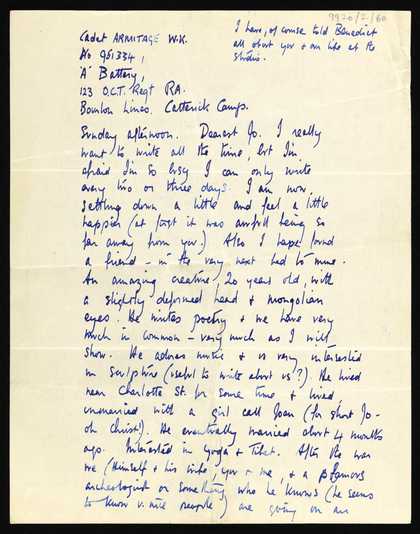 9920/2/60
I have, of course told Benedict
all about you & our life at the
studio.
Cadet ARMITAGE W.K.
No 961334,
'A' Battery,
123 O.C.T. Regt RA.
Bourlon Lines. Catterick Camp.
Sunday afternoon. Dearest Jo. I really
want to write all the time, but I'm
afraid I'm so busy I can only write
every two or three days. I am now
settling down a little and feel a little
happier (at first it was awful being so
far away from you.) Also I have found
a friend – in the very next bed to mine.
An amazing creature, 20 years old, with
a slightly deformed head & mongolian
eyes. He writes poetry & we have very
much in common – very much as I will
show. He adores music & is very interested
in sculpture (useful to write about us?). He lived
near Charlotte St for some time & lived
unmarried with a girl call Joan (for short Jo –
oh Christ!). He eventually married about 4 months
ago. Interested in Yoga & Tibet. After the war
we (Himself & his wife, you & me, & a famous
archeologist or something who he knows (he seems
to know v. nice people) are going on an